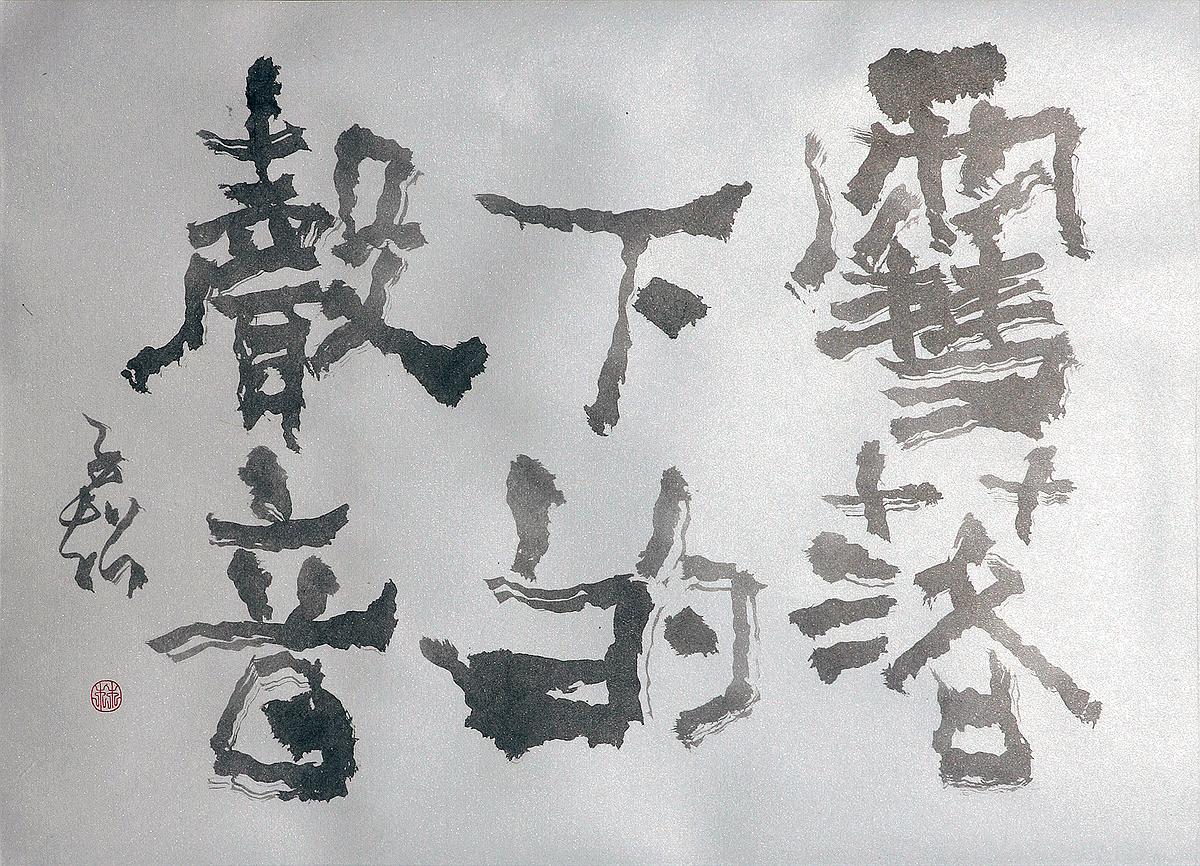 雪落
下的
聲音